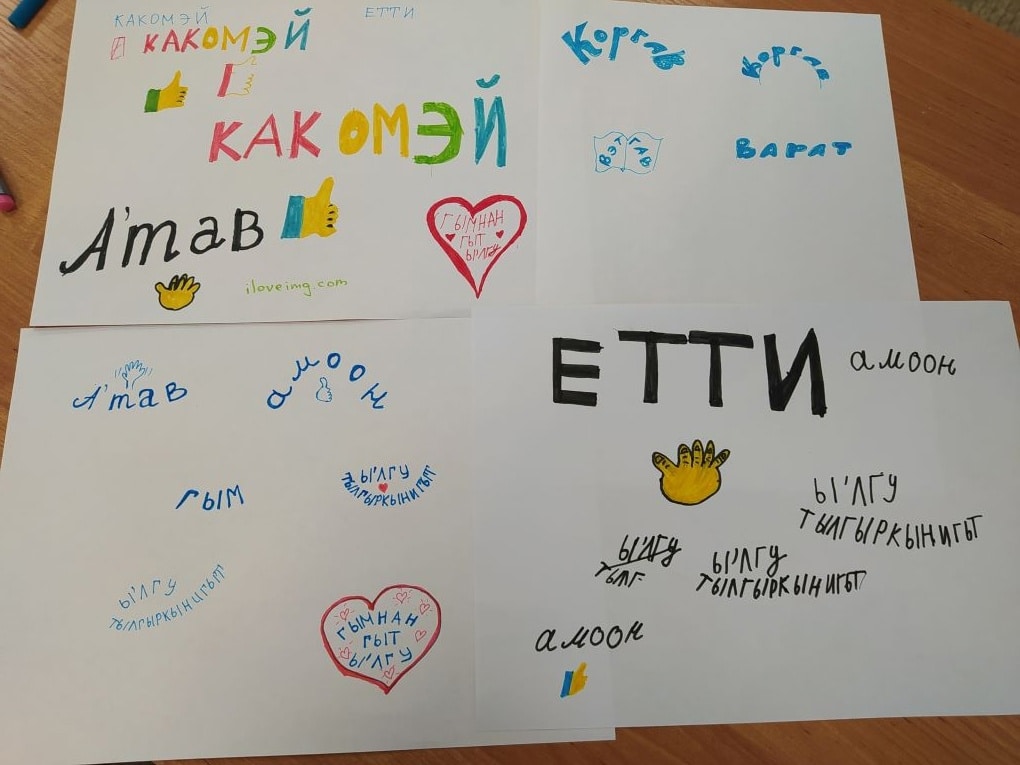 КАКОМЭЙ
ЕТТИ
КАКОМЭЙ
КАКОМЭЙ
А'тав
ГЫМНАН
ГЫТ
Ы'ЛГУ
iloveimg.com
Коргав
Коргав
ВЭТГАВ
ВАРАТ
А'тав
амоон
ГЫМ
Ы'ЛГУ
ТЫЛГЫРКЫНИГЫТ
Ы'ЛГУ
ТЫЛГЫРКЫНИГЫТ
ГЫМНАН
ГЫТ
Ы'ЛГУ
ЕТТИ
амоон
Ы'ЛГУ
ТЫЛГЫРКЫНИГЫТ
Ы'ЛГУ
ТЫЛГ
Ы'ЛГУ
ТЫЛГЫРКЫНИГЫТ
амоон